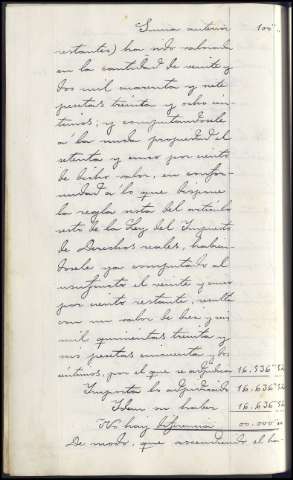 Suma anterior 100"
restantes) ha sido valorada
en la cantidad de veinte y
dos mil cuarenta y siete
pesetas treinta y ocho cén-
timos; y computandosele
a la nuda propiedad el
setenta y cinco por ciento
de dicho valor, en confor-
midad á lo que dispone
la regla sesta del articulo
sesto de la Ley del Impuesto
de Derechos reales, habien-
dosele ya computado al
usufructo el veinte y cinco
por ciento restante, resulta
con un valor de diez y seis
mil quinientas treinta y
seis pesetas cincuenta y dos
céntimos, por el que se adjudica 16.536"52
Importa lo adjudicado 16.636"52
Idem su haber 16.636"52
No hay diferencia 00.000"00
De modo, que ascendiendo el ha-